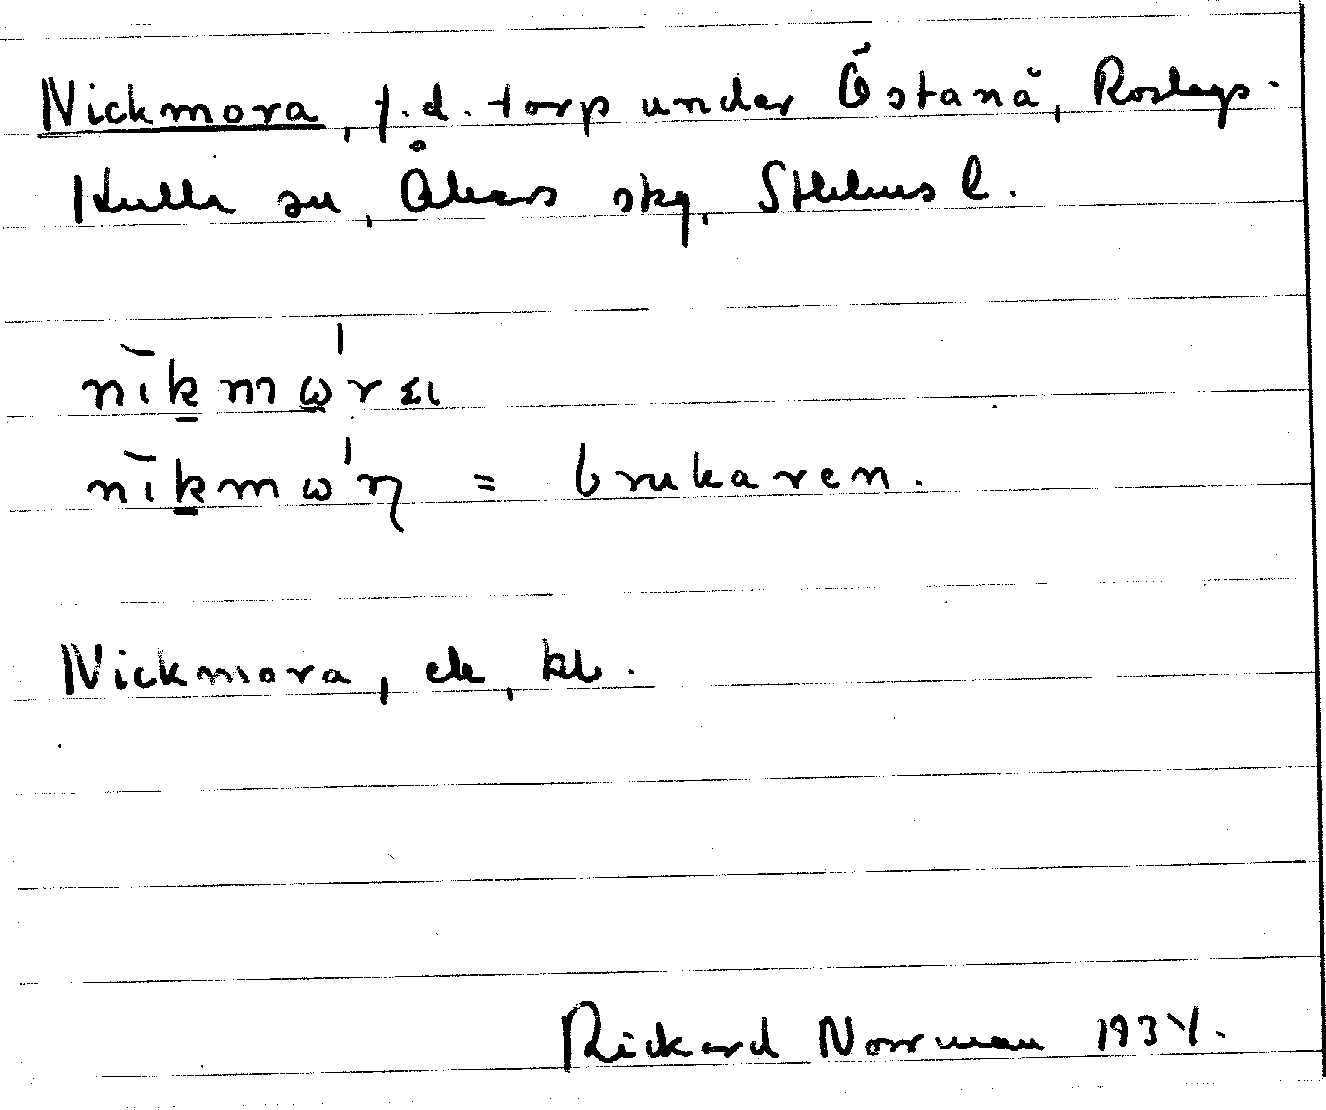 Nickmora, f.d. torp under Östanå, Roslags-
Kulla sn, Åkers skg, Sthlms l.
nikmωra
nikmωη = brukaren.
Nickmora, ek, kb.
Rickard Norrman 1934.